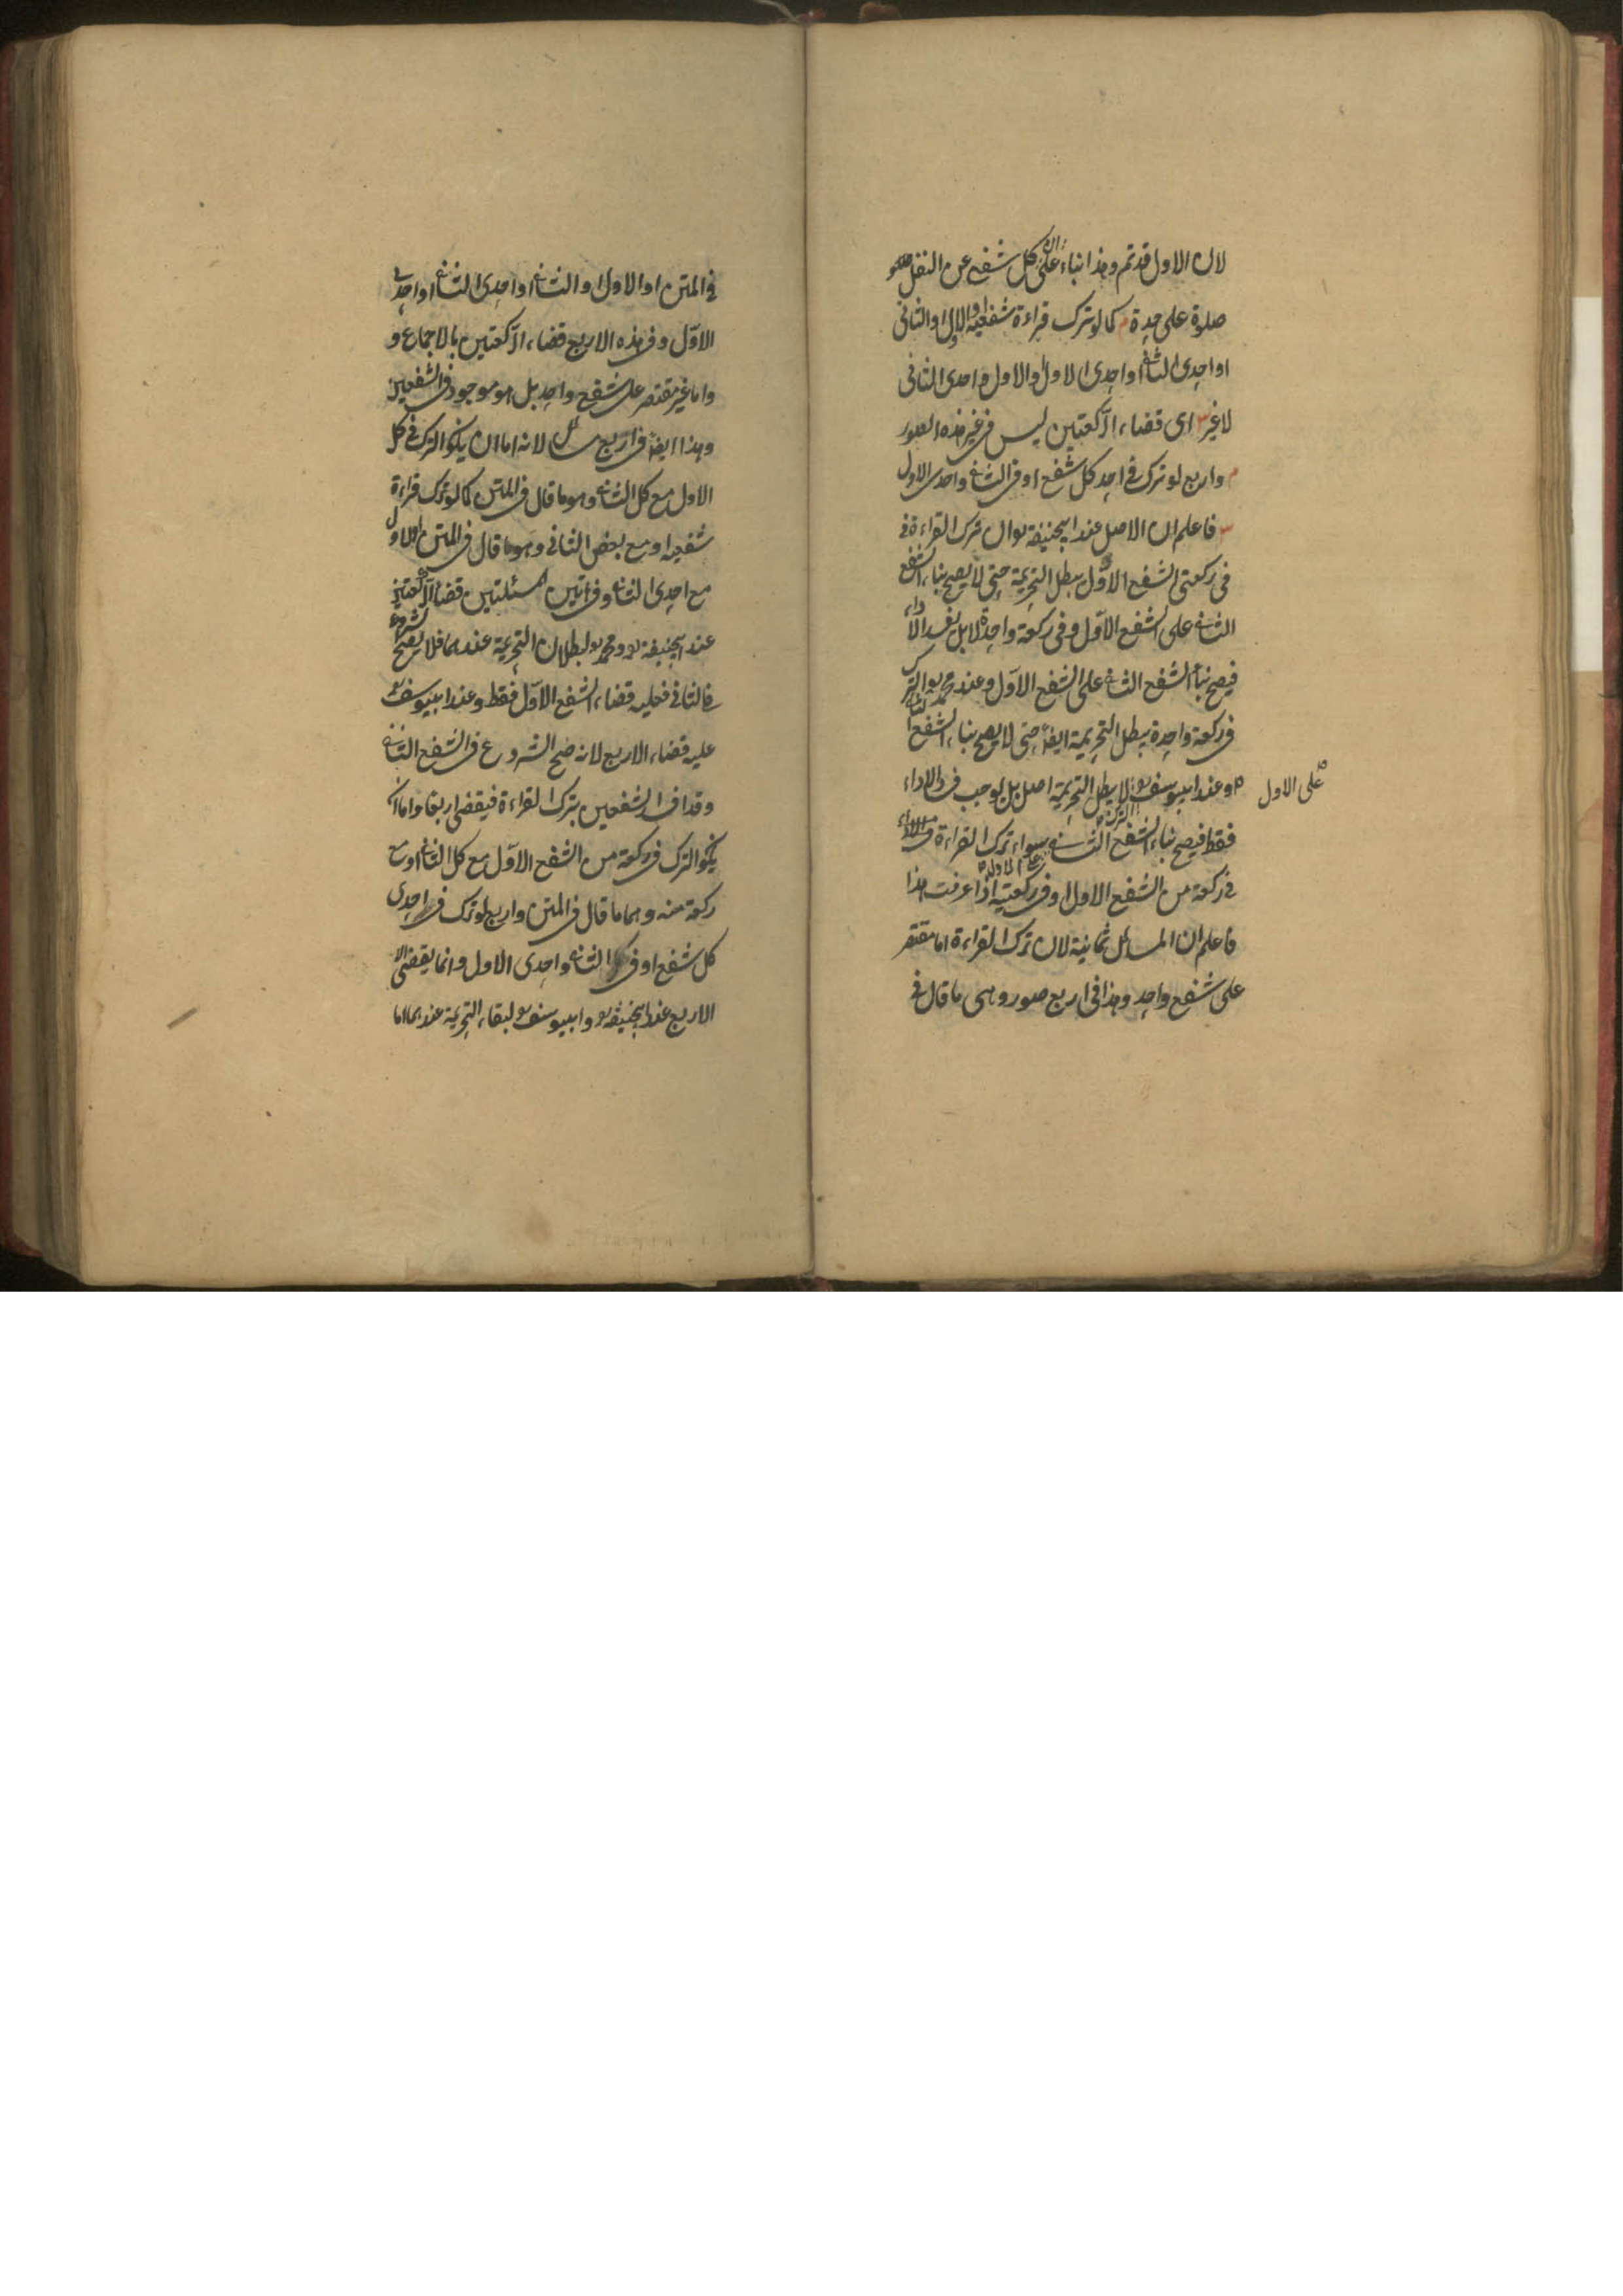 لان الاول قد تم وهذا بناء على ان كل شفع من النفل
صلوة على حدة م كما لو ترك قراءة شفعيه او الاول او الثاني
او احدى الثاني او احدى الاول او الاول واحدى الثاني
لا غير س اى قضاء الركعتين ليس فى غير هذه الصور
م واربع لو ترك فى احد كل شفع او فى الثاني واحدى الاول
س فاعلم ان الاصل عند ابيحنيفة رح ان ترك القراءة فى
فى ركعتى الشفع الاول يبطل التحريمة حتى لا يصح بناء الشفع
الثاني على الشفع الاول وفى ركعة واحدة لا بل يفسد الاداء
فيصح بناء الشفع الثاني على الشفع الاول وعند محمد رح الترك
فى ركعة واحدة يبطل التحريمة ايضا حتى لا يصح بناء الشفع الثاني
على الاول
وعند ابييوسف رح الترك لا يبطل التحريمة اصلا بل يوجب فساد الاداء
فقط فيصح بناء الشفع الثاني على الاول سواء ترك القراءة
فى ركعة من الشفع الاول او فى ركعتيه اذا عرفت هذا
فاعلم ان المسائل ثمانية لان ترك القراءة اما مقتصر
على شفع واحد وهذا فى اربع صور وهى ما قال فى
فى المتن او الاول او الثاني او احدى الثاني او احدى
الاول وفى هذه الاربع قضاء الركعتين بالاجماع و
واما غير مقتصر على شفع واحد بل هو موجود فى الشفعين
وهذا ايضا فى اربع مسائل لانه اما ان يكون الترك فى كل
الاول مع كل الثاني وهو ما قال فى المتن كما لو ترك قراءة
شفعيه او مع بعض الثاني وهو ما قال فى المتن او الاول
مع احدى الثاني وفى هاتين المسئلتين قضاء الركعتين
عند ابيحنيفة رح ومحمد رح لبطلان التحريمة عندهما فلا يصح الشروع
فى الثاني فعليه قضاء الشفع الاول فقط وعند ابييوسف رح
عليه قضاء الاربع لانه صح الشروع فى الشفع الثاني
وقد افسد الشفعين بترك القراءة فيقضى اربعا واما ان
يكون الترك فى ركعة من الشفع الاول مع كل الثاني او مع
ركعة منه وهما ما قال فى المتن واربع لو ترك فى احدى
كل شفع او فى الثاني واحدى الاول وانما يقضى
الاربع عند ابيحنيفة رح وابييوسف رح لبقاء التحريمة عندهما اما